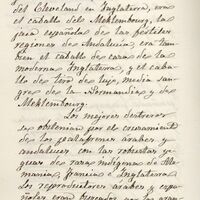 del Cleveland en Inglaterra, era
el caballo del Meklembourg, la
jaca española de las fertiles
regiones de Andalucia, era tam
bien el caballo de caza de la
moderna Inglaterra, y el caba
llo de tiro de lujo, media san
gre de la Normandia y de
Meklembourg.
Los mejores destrieros
se obtenian por el cruzamiento
de los garañones arabes y
andaluces con las robustas ye
guas de raza indigena de Ale
mania, Francia e Inglaterra
los reproductores arabes y espa
ñoles eran